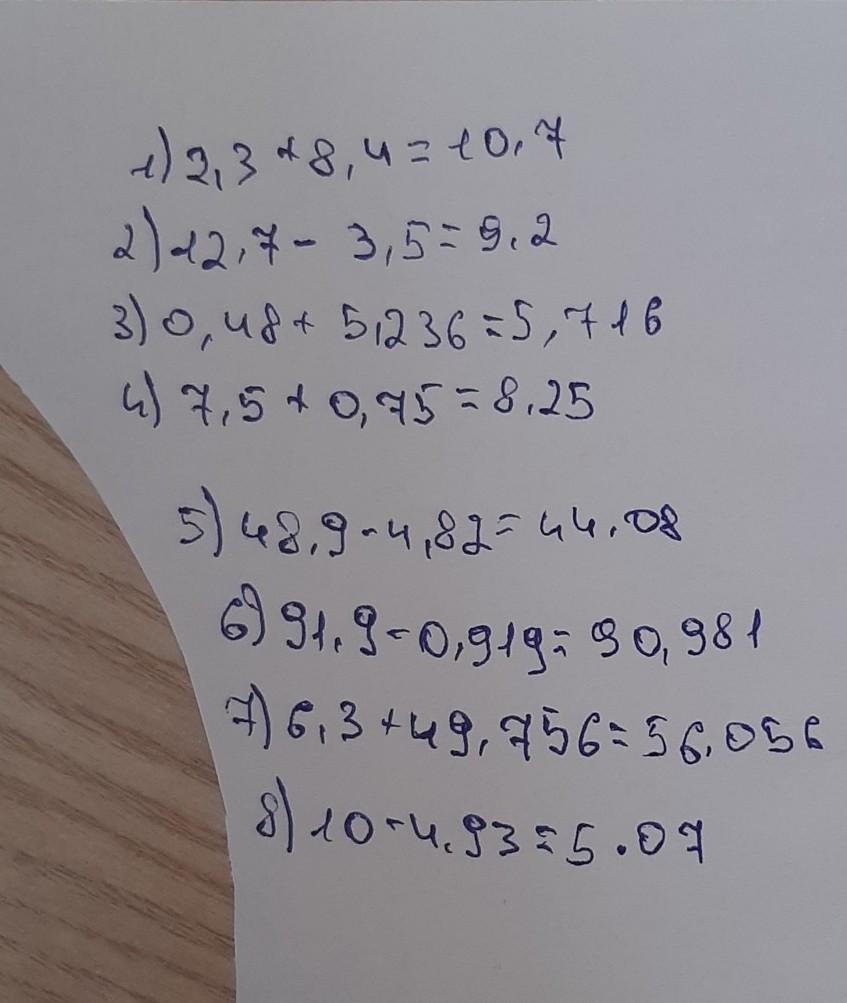 1) 2,3 + 8,4 = 10,7
2) 12,7 - 3,5 = 9.2
3) 0,48 + 5,236 = 5,716
4) 7,5 + 0,75 = 8.25
5) 48,9 - 4,82 = 44.08
6) 91,9 - 0,919 = 90,981
7) 6,3 + 49,756 = 56.056
8) 10 - 4.93 = 5.07